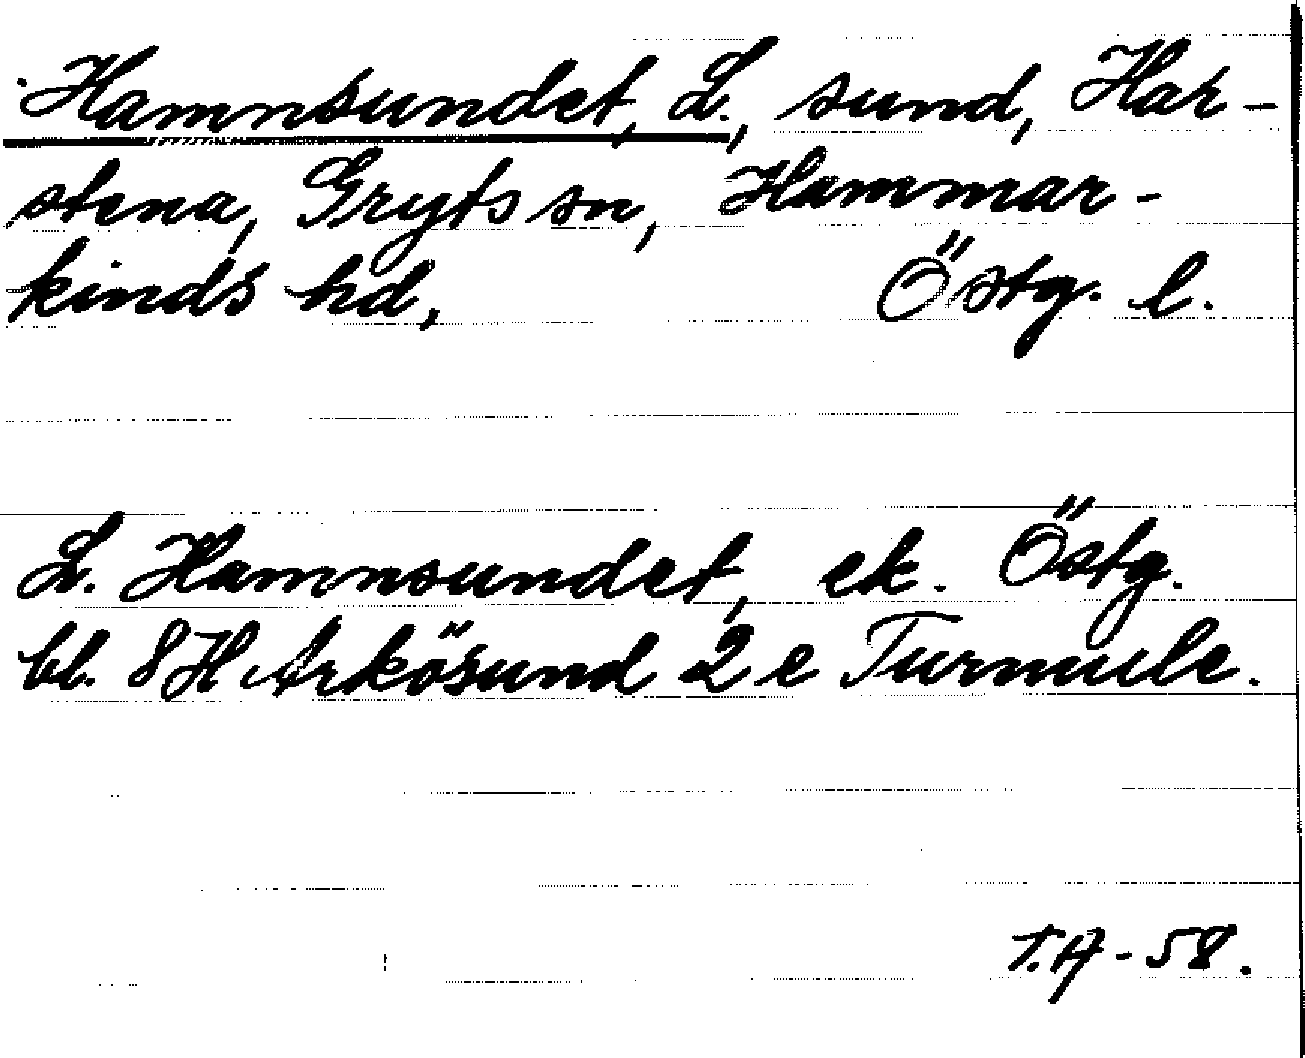 Hamnsundet, L., sund, Har-
stena, Gryts sn, Hammar-
kinds hd, Östg. l.
L. Hamnsundet, ek. Östg.
bl. 8H Arkösund 2 e Turmule.
T.A-58.